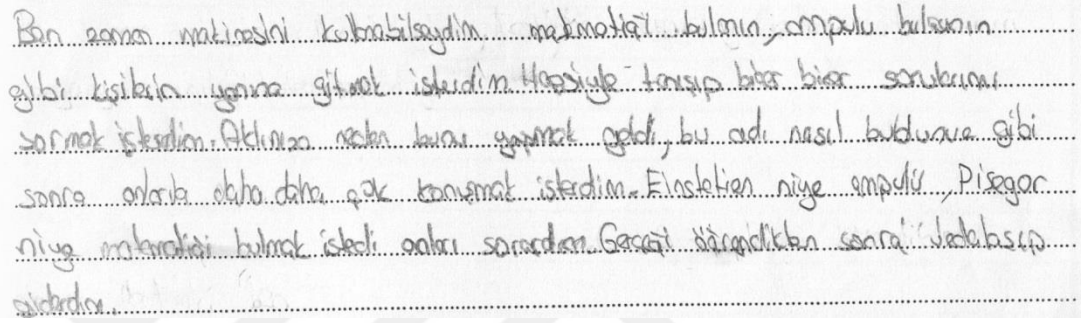 Ben zaman makinesini kullanabilseydim matematiği bulanın, ampulu bulanın
gibi kişilerin yanına gitmek isterdim. Hepsiyle tanışıp birer birer sorularımı
sormak isterdim. Aklınıza neden bunu yapmak geldi, bu adı nasıl buldunuz gibi
sonra onlarla daha daha çok konuşmak isterdim. Einstetien niye ampulü, Pisagor
niye matematiği bulmak istedi onları sorardım. Gerçeği öğrendikten sonra vedalaşıp
giderdim.